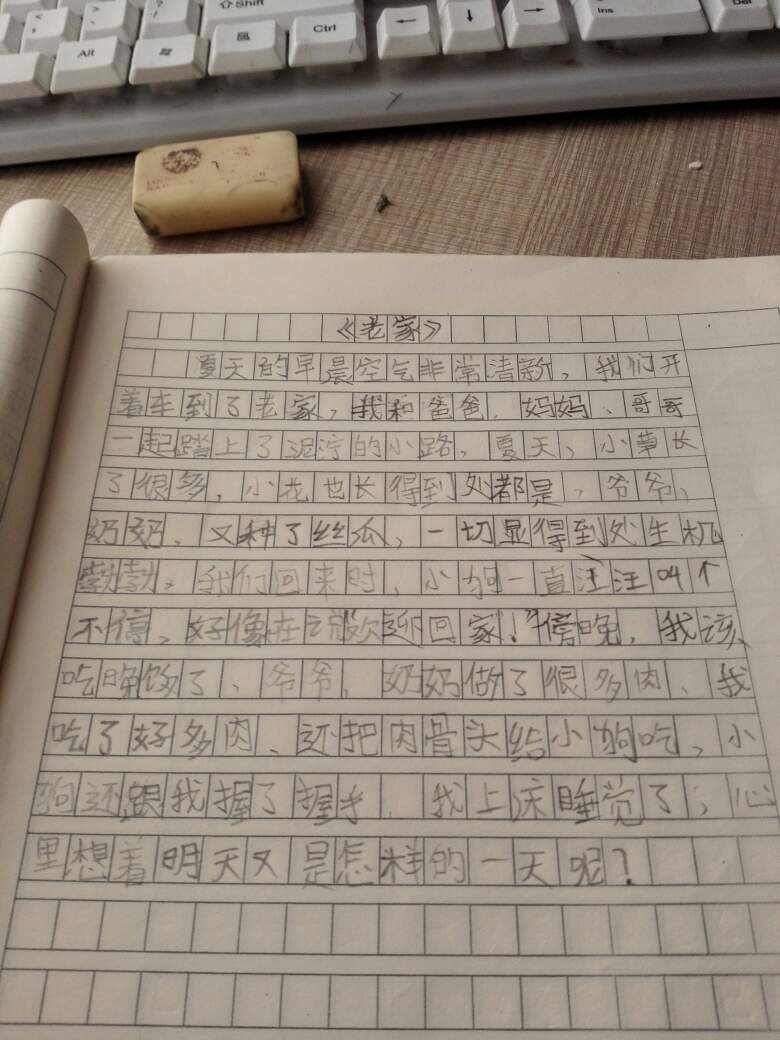 Shift
Alt
Ctrl
←
↓
→
Ins
Del
《老家》
夏天的早晨空气非常清新，我们开
着车到了老家，我和爸爸、妈妈、哥哥
一起踏上了泥泞的小路，夏天，小草长
了很多，小花也长得到处都是，爷爷，
奶奶，又种了丝瓜，一切显得到处生机
勃勃。我们回来时，小狗一直汪汪叫个
不停，好像在说欢迎回家！"傍晚，我该
吃晚饭了、爷爷，奶奶做了很多肉、我
吃了好多肉、还把肉骨头给小狗吃，小
狗还跟我握了握手，我上床睡觉了；心
里想着明天又是怎样的一天呢？